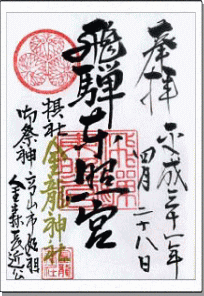 奉拝
平成三十一年
四月
二十八日
飛騨東照宮
摂社
金龍神社
御祭神
高山市始祖
金森長近公